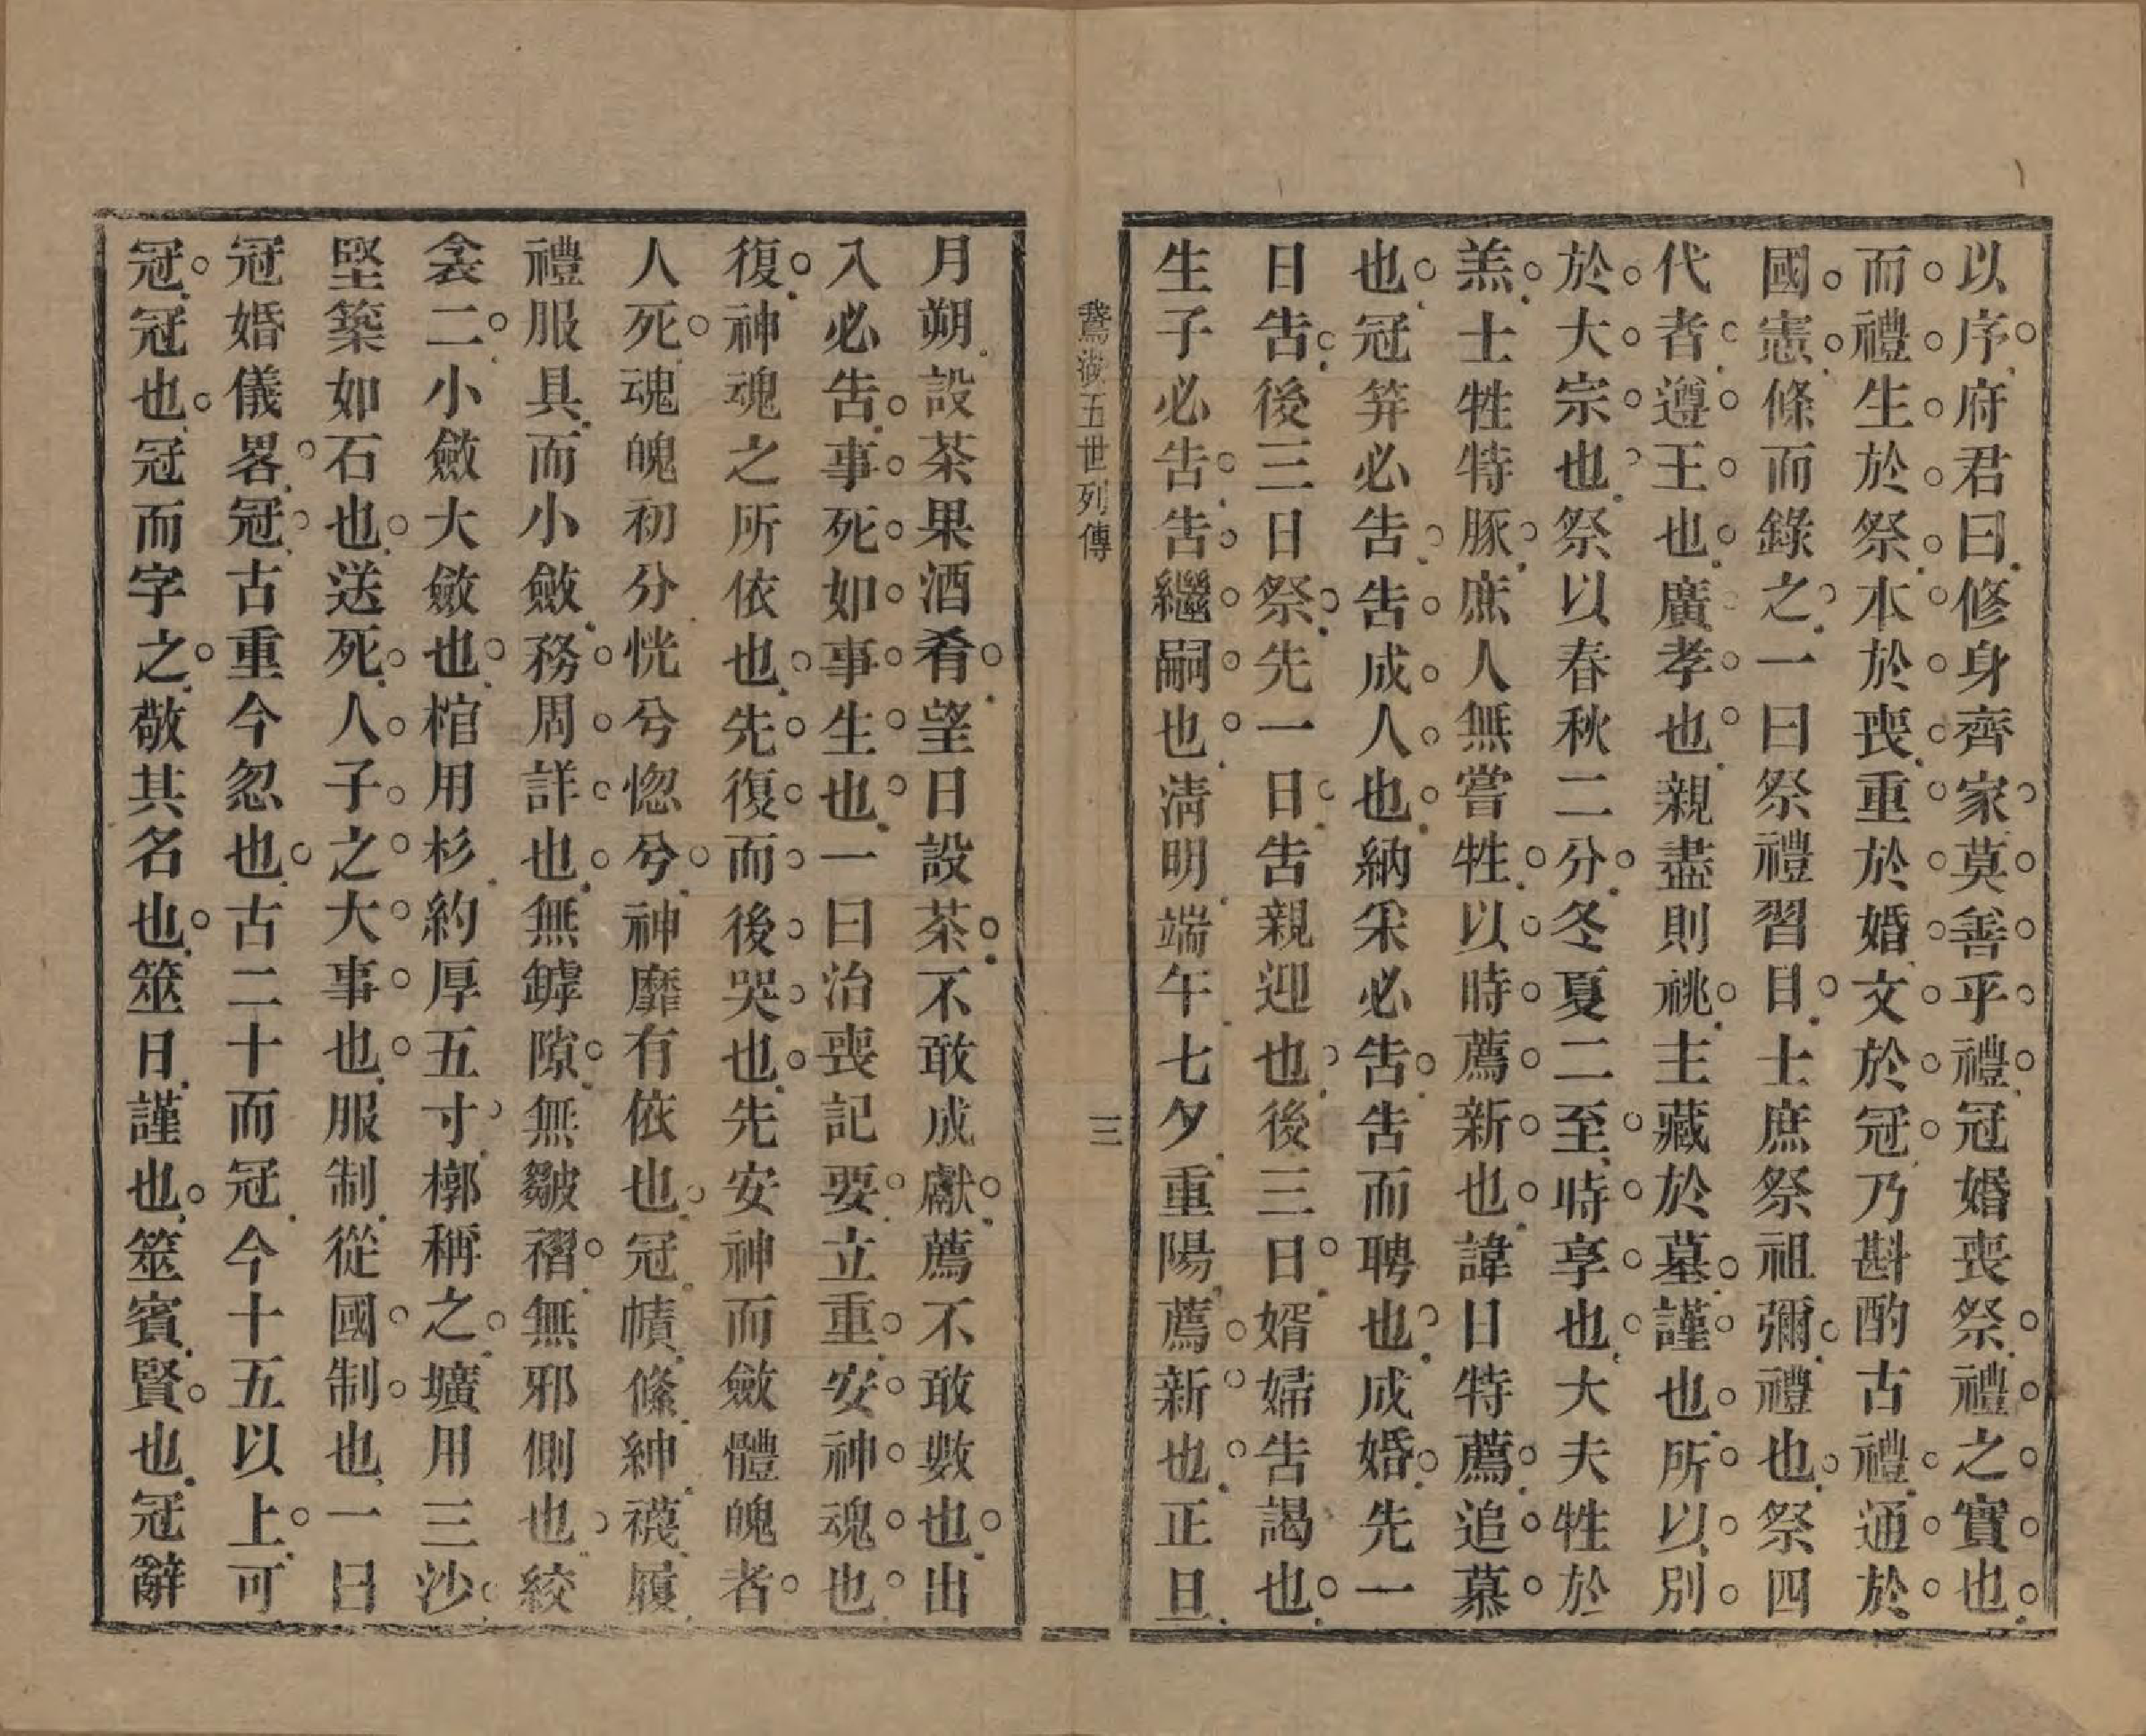 以序府君曰修身齊家莫善乎禮冠婚喪祭禮之實也
而禮生於祭本於喪重於婚文於冠乃斟酌古禮通於
國憲條而錄之一曰祭禮習目士庶祭祖彌禮也祭四
代者遵王也廣孝也親盡則祧主藏於墓謹也所以別
於大宗也祭以春秋二分冬夏二至時享也大夫牲於
羔士牲特豚庶人無嘗牲以時薦新也諱日特薦追慕
也冠笄必告告成人也納采必告告而聘也成婚先一
日告後三日祭先一日告親迎也後三日婿婦告謁也
生子必告告繼嗣也清明端午七夕重陽薦新也正旦
鵞湖五世列傳
三
月朔設茶果酒肴望日設茶不敢成獻薦不敢數也出
入必告事死如事生也一曰治喪記要立重安神魂也
復神魂之所依也先復而後哭也先安神而斂體魄者
人死魂魄初分恍兮惚兮神靡有依也冠幘絛紳襪履
禮服具而小斂務周詳也無罅隙無皺褶無邪側也絞
衾二小斂大斂也棺用杉約厚五寸槨稱之壙用三沙
堅築如石也送死人子之大事也服制從國制也一曰
冠婚儀畧冠古重今忽也古二十而冠今十五以上可
冠冠也冠而字之敬其名也筮日謹也筮賓賢也冠辭